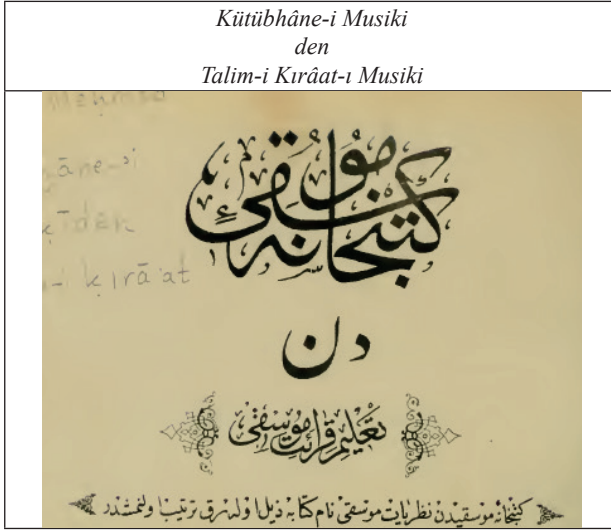 Kütübhâne-i Musiki
den
Talim-i Kırâat-ı Musiki
Mehmed
āne-'i
ķīden
-i ķırā'at
كتبخانهٔ موسقى
دن
تعليم قرائت موسقى
كتبخانهٔ موسقيدن نظريات موسقى نام كتابه ذيل اولهرق ترتيب اولنمشدر